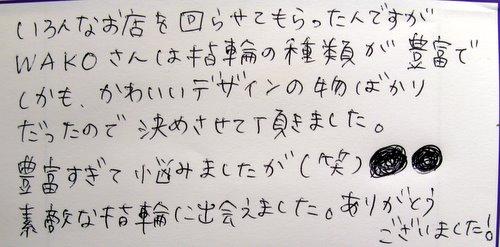 いろんなお店を回らせてもらったんですが
WAKOさんは指輪の種類が豊富で
しかも、かわいいデザインの物ばかり
だったので決めさせて頂きました。
豊富すぎて小悩みましたが(笑)
素敵な指輪に出会えました。ありがとう
ございました!